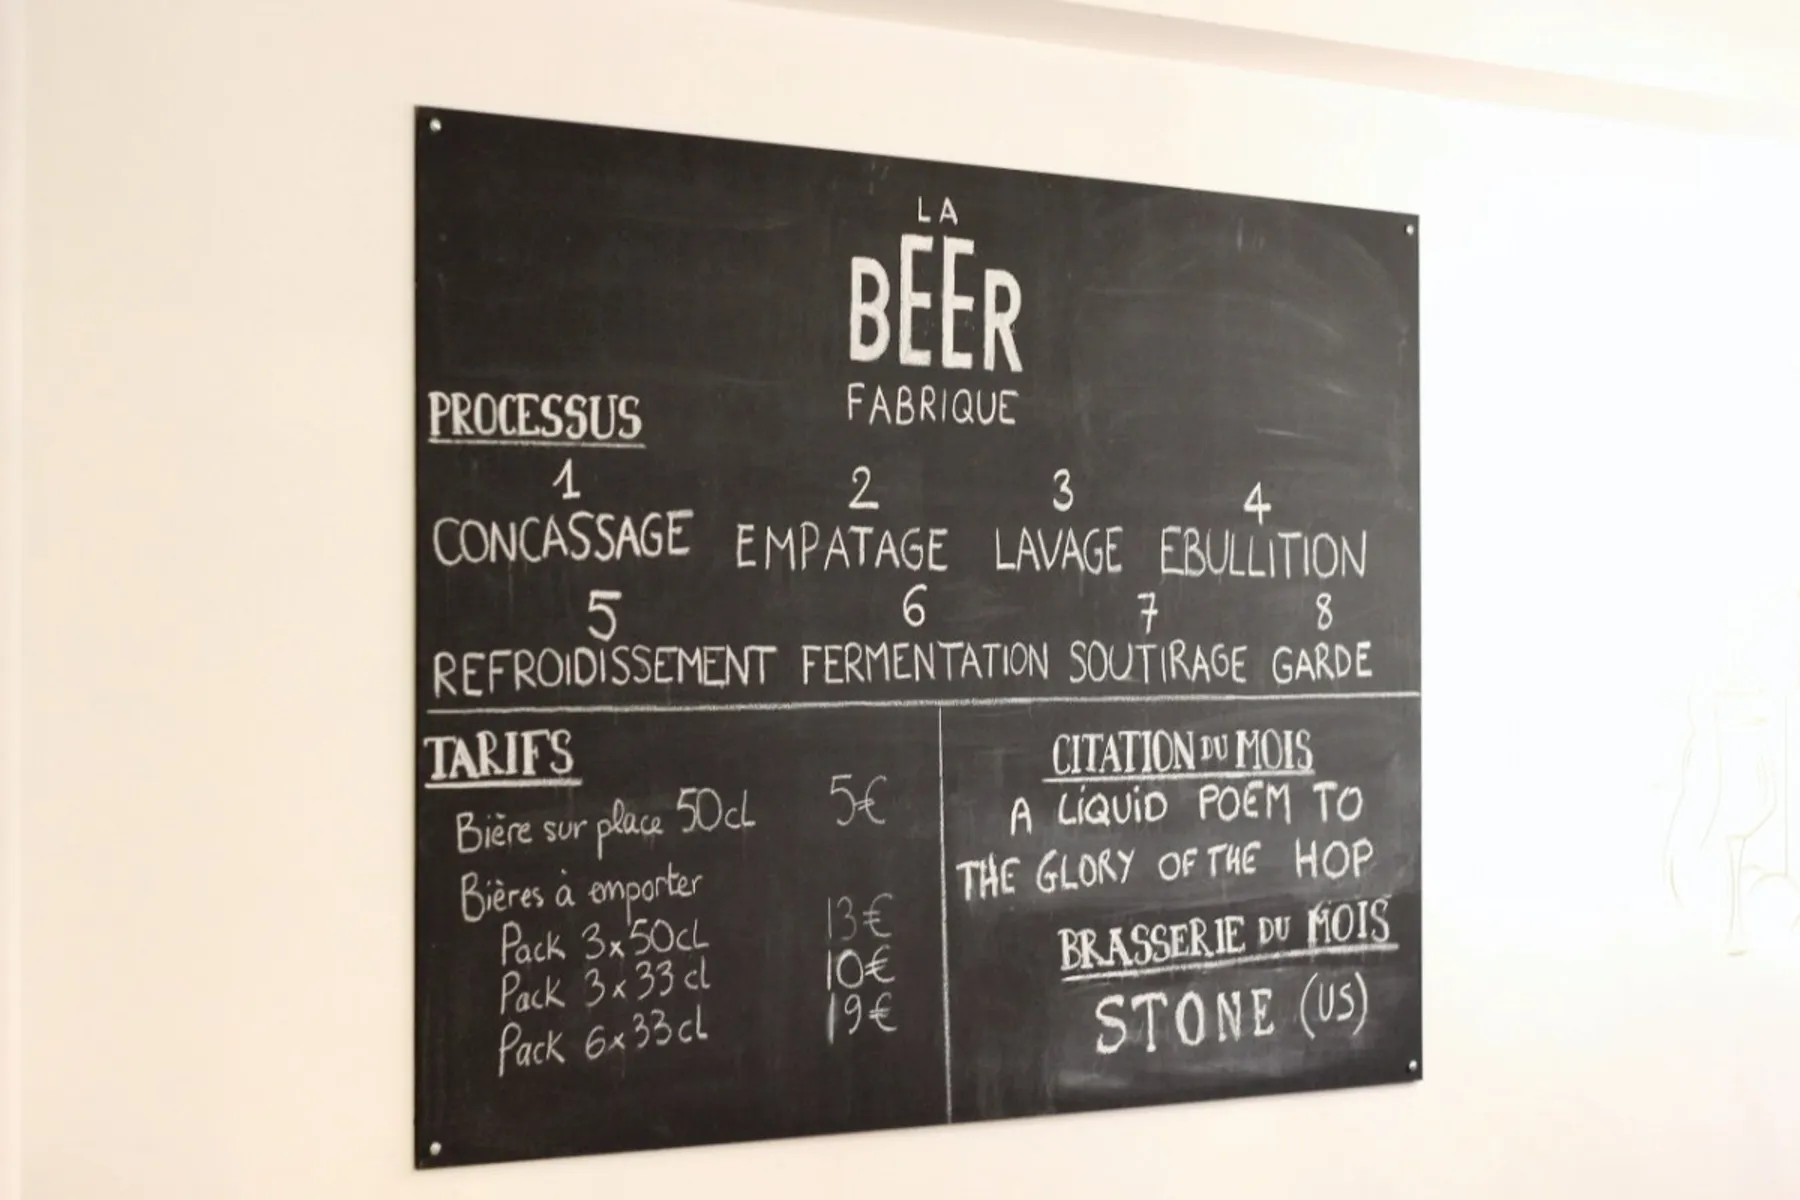 LA
BEER
FABRIQUE
PROCESSUS
1 2 3 4
CONCASSAGE EMPATAGE LAVAGE EBULLITION
5 6 7 8
REFROIDISSEMENT FERMENTATION SOUTIRAGE GARDE
TARIFS
Bière sur place 50cL 5€
Bières à emporter
Pack 3x50cL 13€
Pack 3x33cl 10€
Pack 6x33cl 19€
CITATION DU MOIS
A LIQUID POEM TO
THE GLORY OF THE HOP
BRASSERIE DU MOIS
STONE (US)